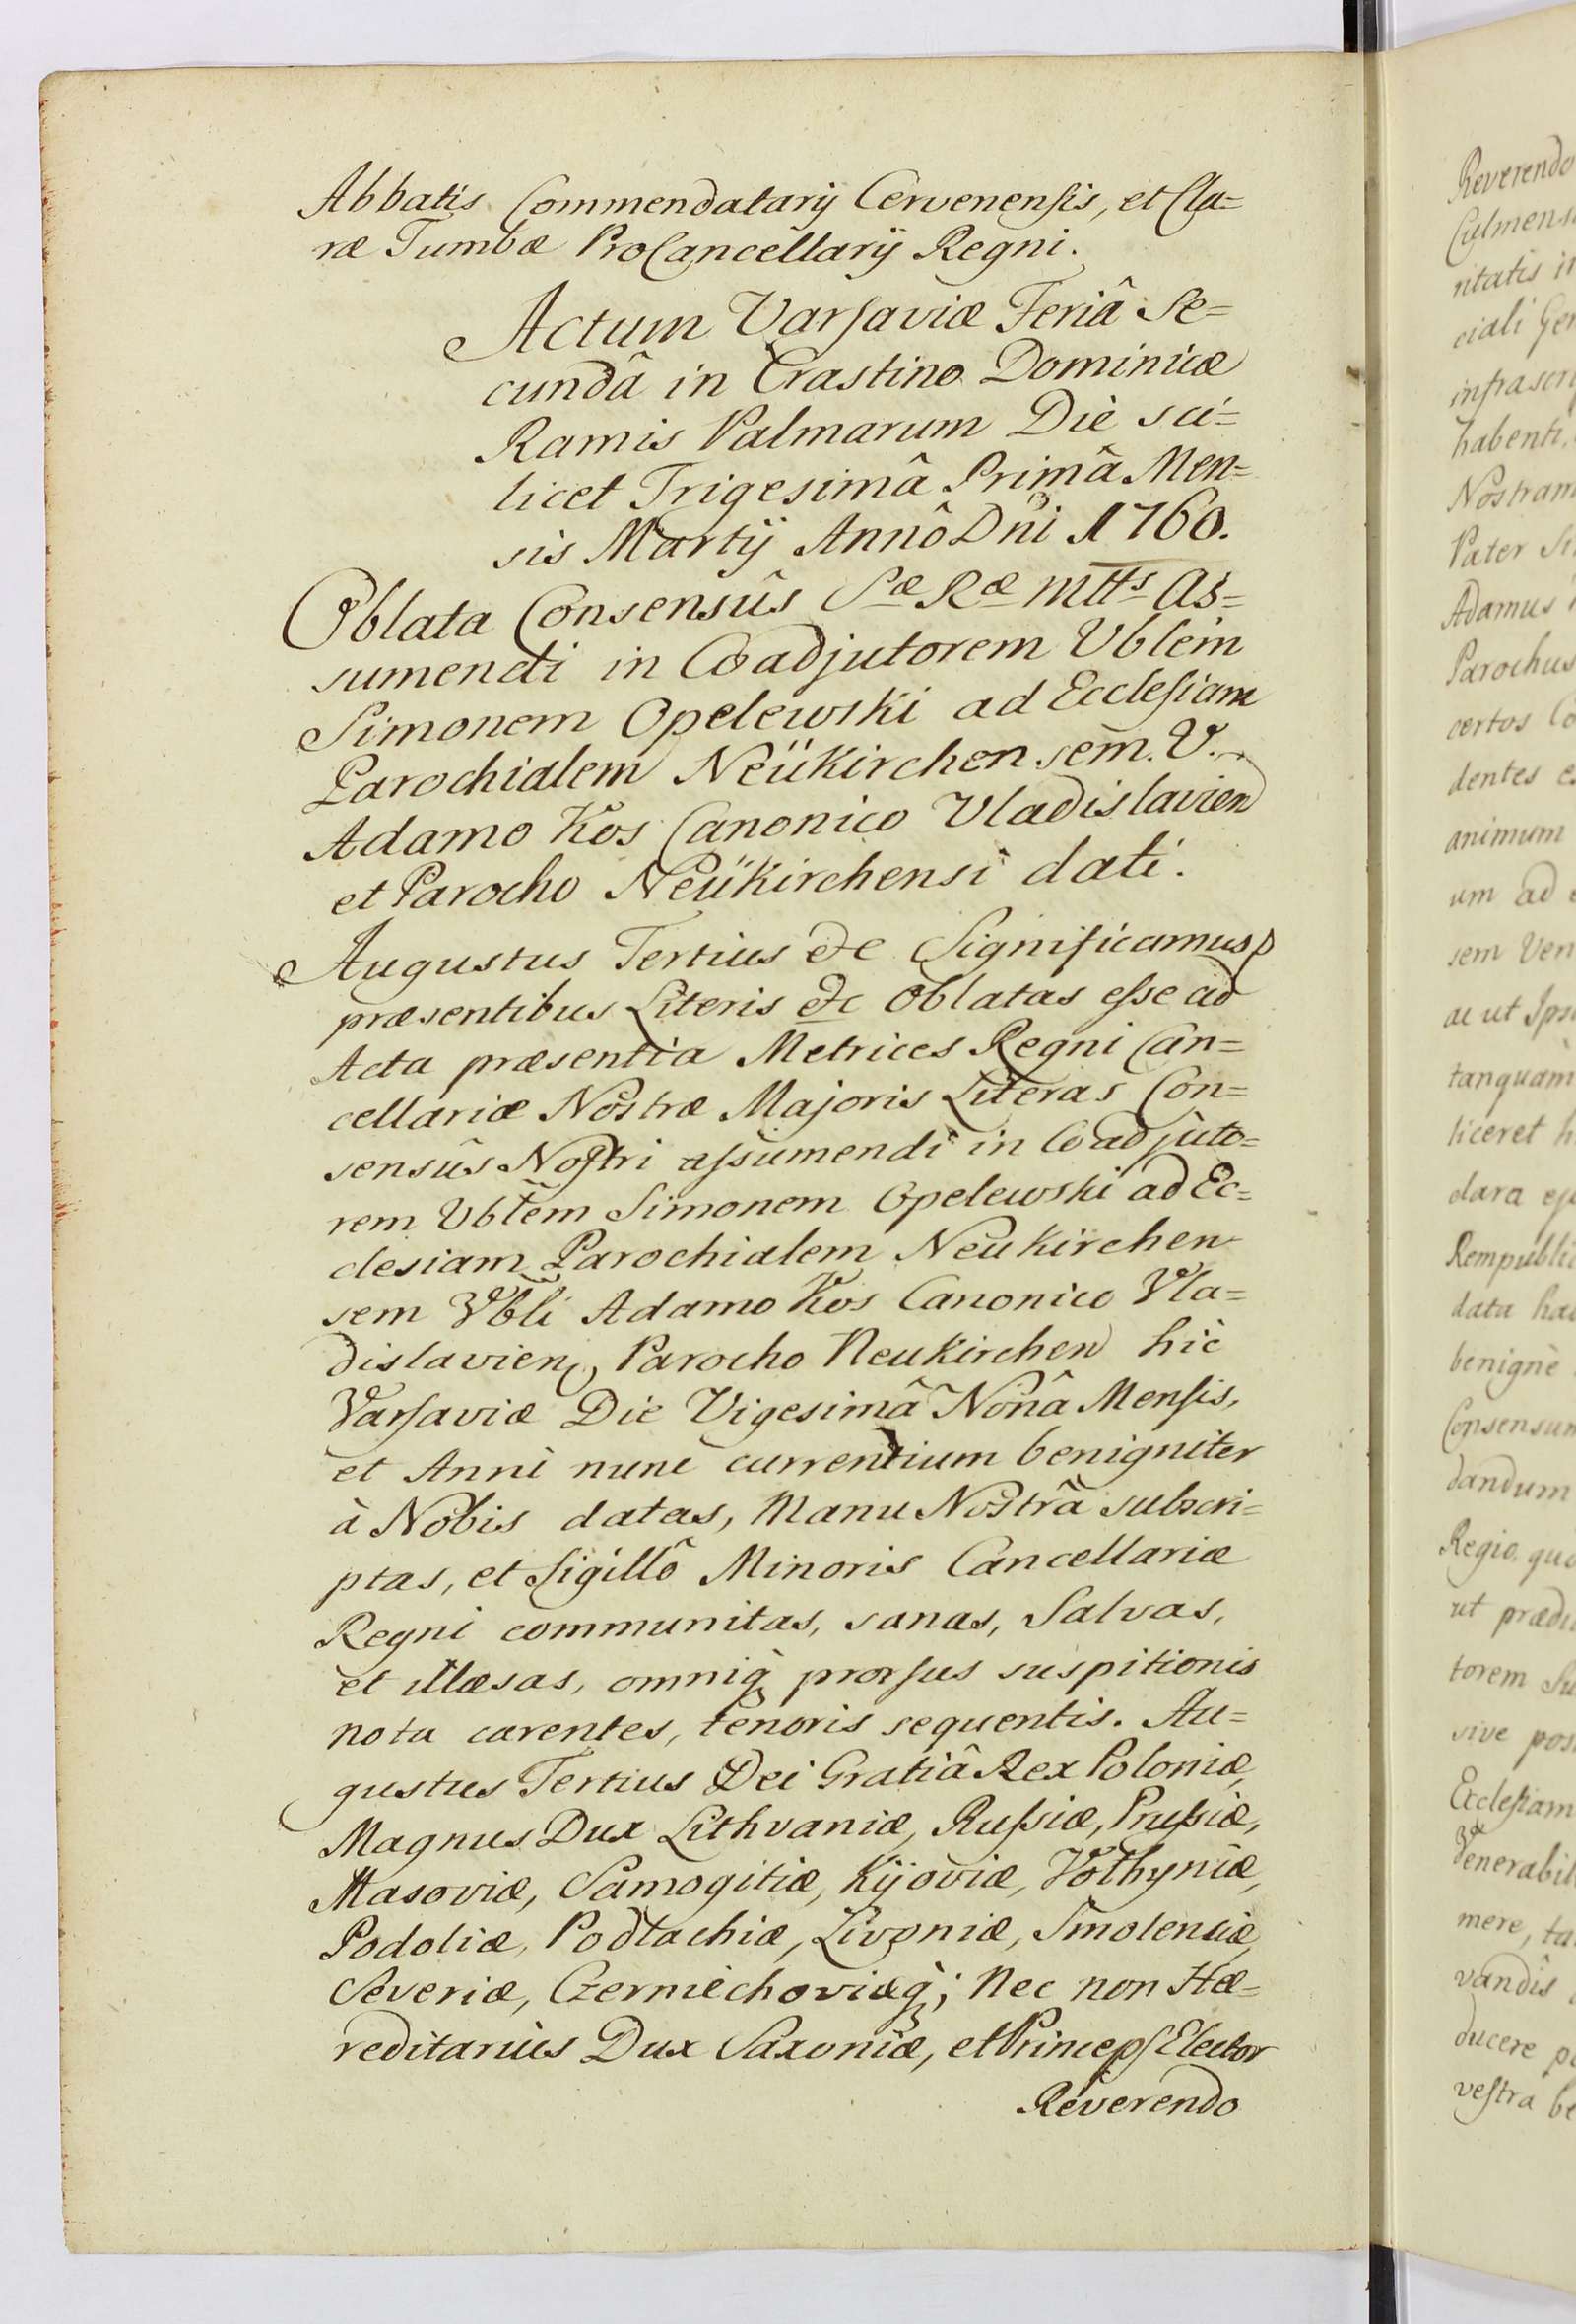 Abbatis Commendatarij Cervenensis, et Cla=
ræ Tumbæ ProCancellarij Regni.
Actum Varsaviæ Feriâ Se=
cundâ in Crastino Dominicæ
Ramis Palmarum Die sci=
licet Trigesimâ Primâ Men=
sis Martij Annô Dñi 1760.
Oblata Consensûs Sæ Ræ Mtts As=
sumendi in Coadjutorem Vblem
Simonem Opelewski ad Ecclesiam
Parochialem Neükirchensem. V.
Adamo Kos Canonico Vladislavien
et Parocho Neükirchensi dati.
Augustus Tertius &c Significamus p
præsentibus Literis &c Oblatas esse ad
Acta præsentia Metrices Regni Can=
cellariæ Nostræ Majoris Literas Con=
sensûs Nostri assumendi in Coadjuto=
rem Vblem Simonem Opelewski ad Ec=
clesiam Parochialem Neukirchen
sem Vbli Adamo Kos Canonico Vla=
dislavien, Parocho Neukirchen hic
Varsaviæ Die Vigesimâ Nonâ Mensis,
et Anni nunc currentium benigniter
à Nobis datas, Manu Nostrâ subscri=
ptas, et Sigillô Minoris Cancellariæ
Regni communitas, sanas, Salvas,
et illæsas, omniq prorsus suspitionis
nota carentes, tenoris sequentis. Au=
gustus Tertius Dei Gratiâ Rex Poloniæ,
Magnus Dux Lithvaniæ, Russiæ, Prussiæ,
Masoviæ, Samogitiæ, Kijoviæ, Volhyniæ,
Podoliæ, Podlachiæ, Livoniæ, Smolensciæ,
Severiæ, Czerniechoviæq; Nec non Hæ=
reditarius Dux Saxoniæ, et Princeps Elector
Reverendo
Reverendo
Culmens
ritatis in
ciali Gen
infrascri
habenti,
Nostram
Pater
Adamus
Parochus
certos Co
dentes
animum
um ad
sem Ven
ac ut Ips
tanquàm
liceret h
clara
Rempubli
data
benignè
Consensum
dandum
Regio. quo
ut prædi
torem Su
sive pos
Ecclesiam
Venerabil
mere, ta
vandis
ducere
vestra be